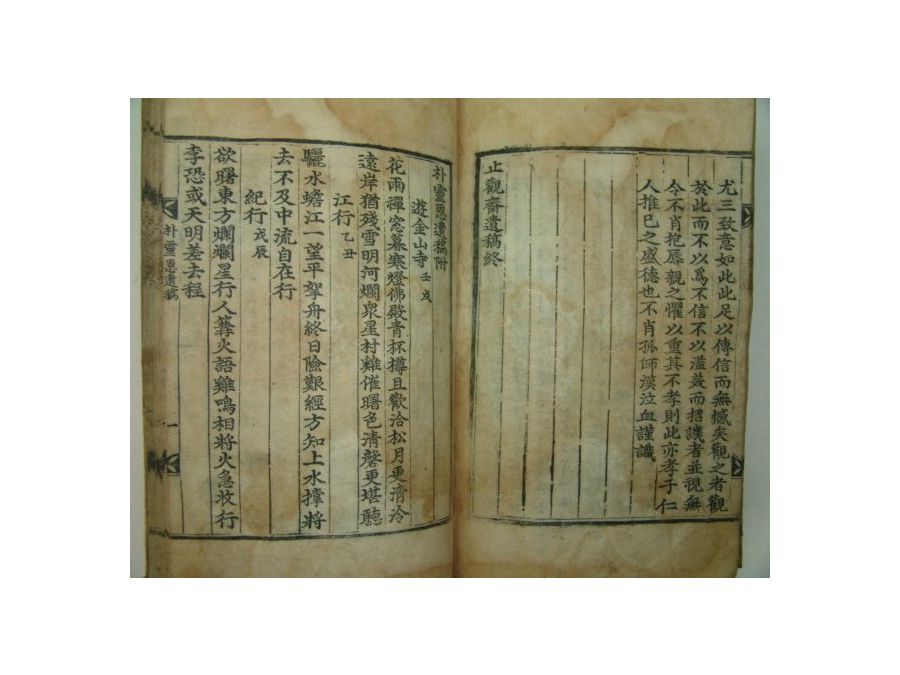 尤三致意如此此足以傳信而無憾矣觀之者觀
於此而不以爲不信不以溢美而招譏者並視無
令不肖抱辱親之懼以重其不孝則此亦孝子仁
人推已之盛德也不肖孤師漢泣血謹識
止觀齋遺稿終
朴靈恩遺稿附
遊金山寺壬戌
花雨禪窓暮寒燈佛殿靑杯樽且歡洽松月更淸冷
遠岸猶殘雪明河爛衆星村雞催曙色淸磬更堪聽
江行乙丑
驪水蟾江一望平挐舟終日險艱經方知上水撑將
去不及中流自在行
紀行戊辰
欲曙東方爛爛星行人篝火語雞鳴相將火急收行
李恐或天明差去程
朴靈恩遺稿
一